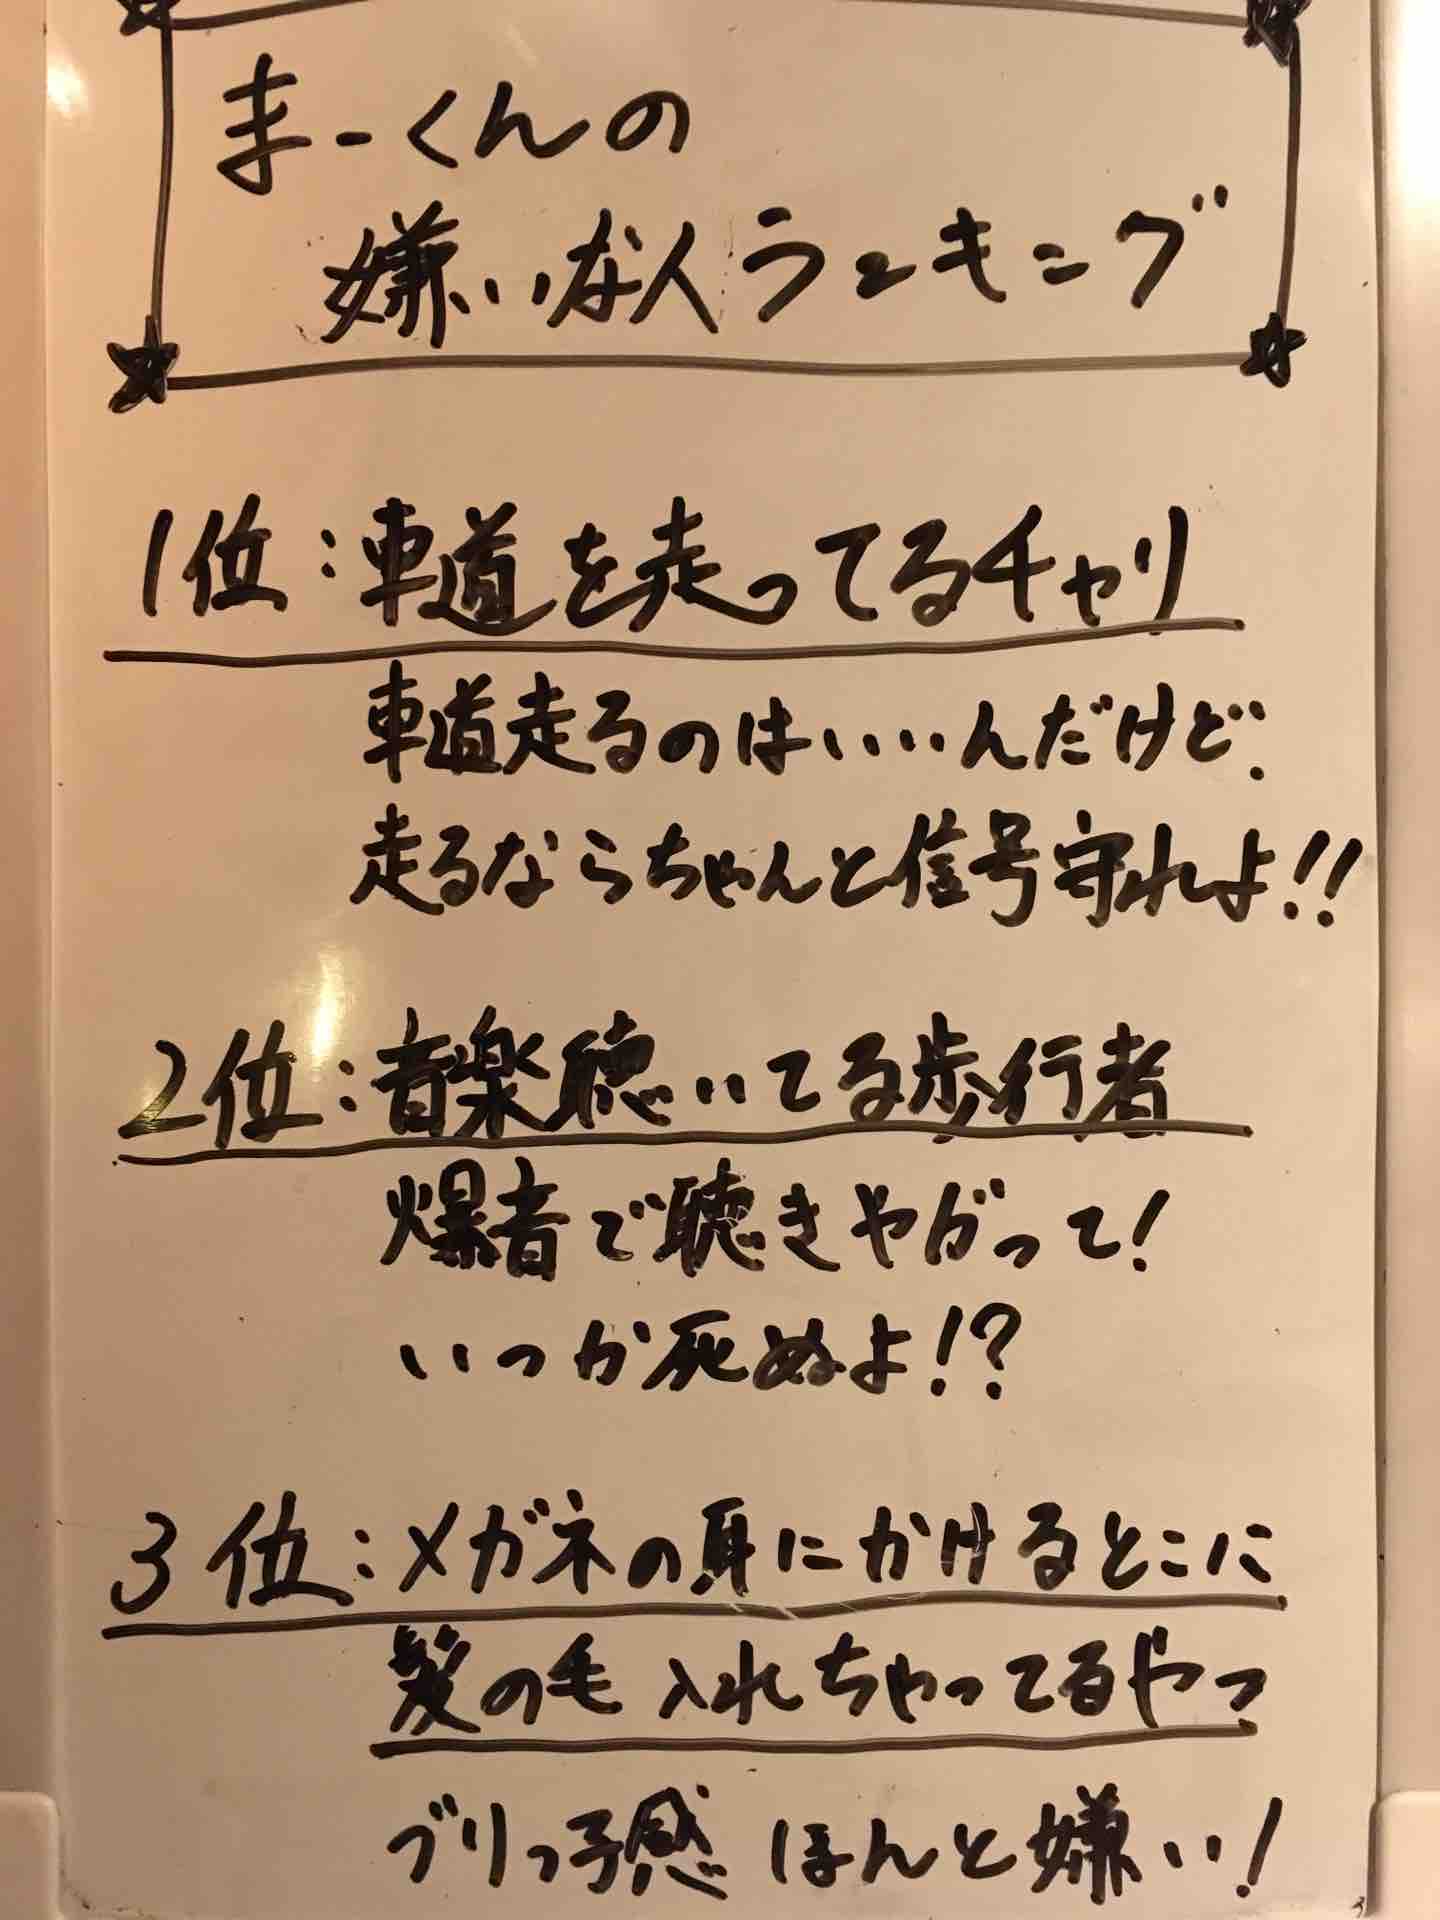 まーくんの
嫌いな人ランキング
1位:車道を走ってるチャリ
車道走るのはいいんだけど、
走るならちゃんと信号守れよ!!
2位:音楽聴いてる歩行者
爆音で聴きやがって!
いつか死ぬよ!?
3位:メガネの耳にかけるとこに
髪の毛入れちゃってるやつ
ブリっ子感ほんと嫌い!